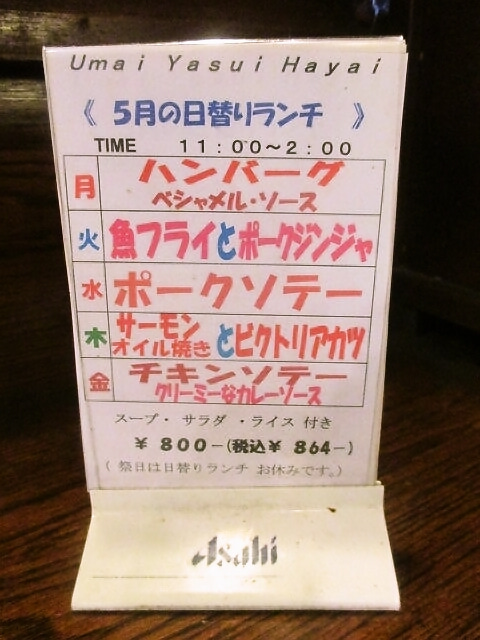 Umai Yasui Hayai
《 5月の日替りランチ 》
TIME 11:00～2:00
月 ハンバーグ
ベシャメル・ソース
火 魚フライとポークジンジャ
水 ポークソテー
木 サーモンオイル焼きとビクトリアカツ
金 チキンソテー
クリーミーなカレーソース
スープ・サラダ・ライス 付き
¥ 800-(税込¥ 864-)
( 祭日は日替りランチ お休みです。)
Asahi